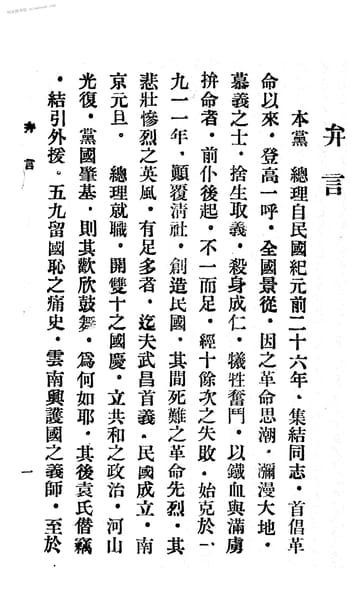 弁言
本黨　總理自民國紀元前二十六年・集結同志・首倡革
命以來・登高一呼・全國景從・因之革命思潮・瀰漫大地・
慕義之士・捨生取義・殺身成仁・犧牲奮鬥・以鐵血與滿虜
拚命者・前仆後起・不一而足・經十餘次之失敗・始克於一
九一一年・顛覆清社・創造民國・其間死難之革命先烈・其
悲壯慘烈之英風・有足多者・迄夫武昌首義・民國成立・南
京元旦・　總理就職・開雙十之國慶・立共和之政治・河山
光復・黨國肇基・則其歡欣鼓舞・爲何如耶・其後袁氏僭竊
・結引外援・五九留國恥之痛史・雲南興護國之義師・至於
弁言
一